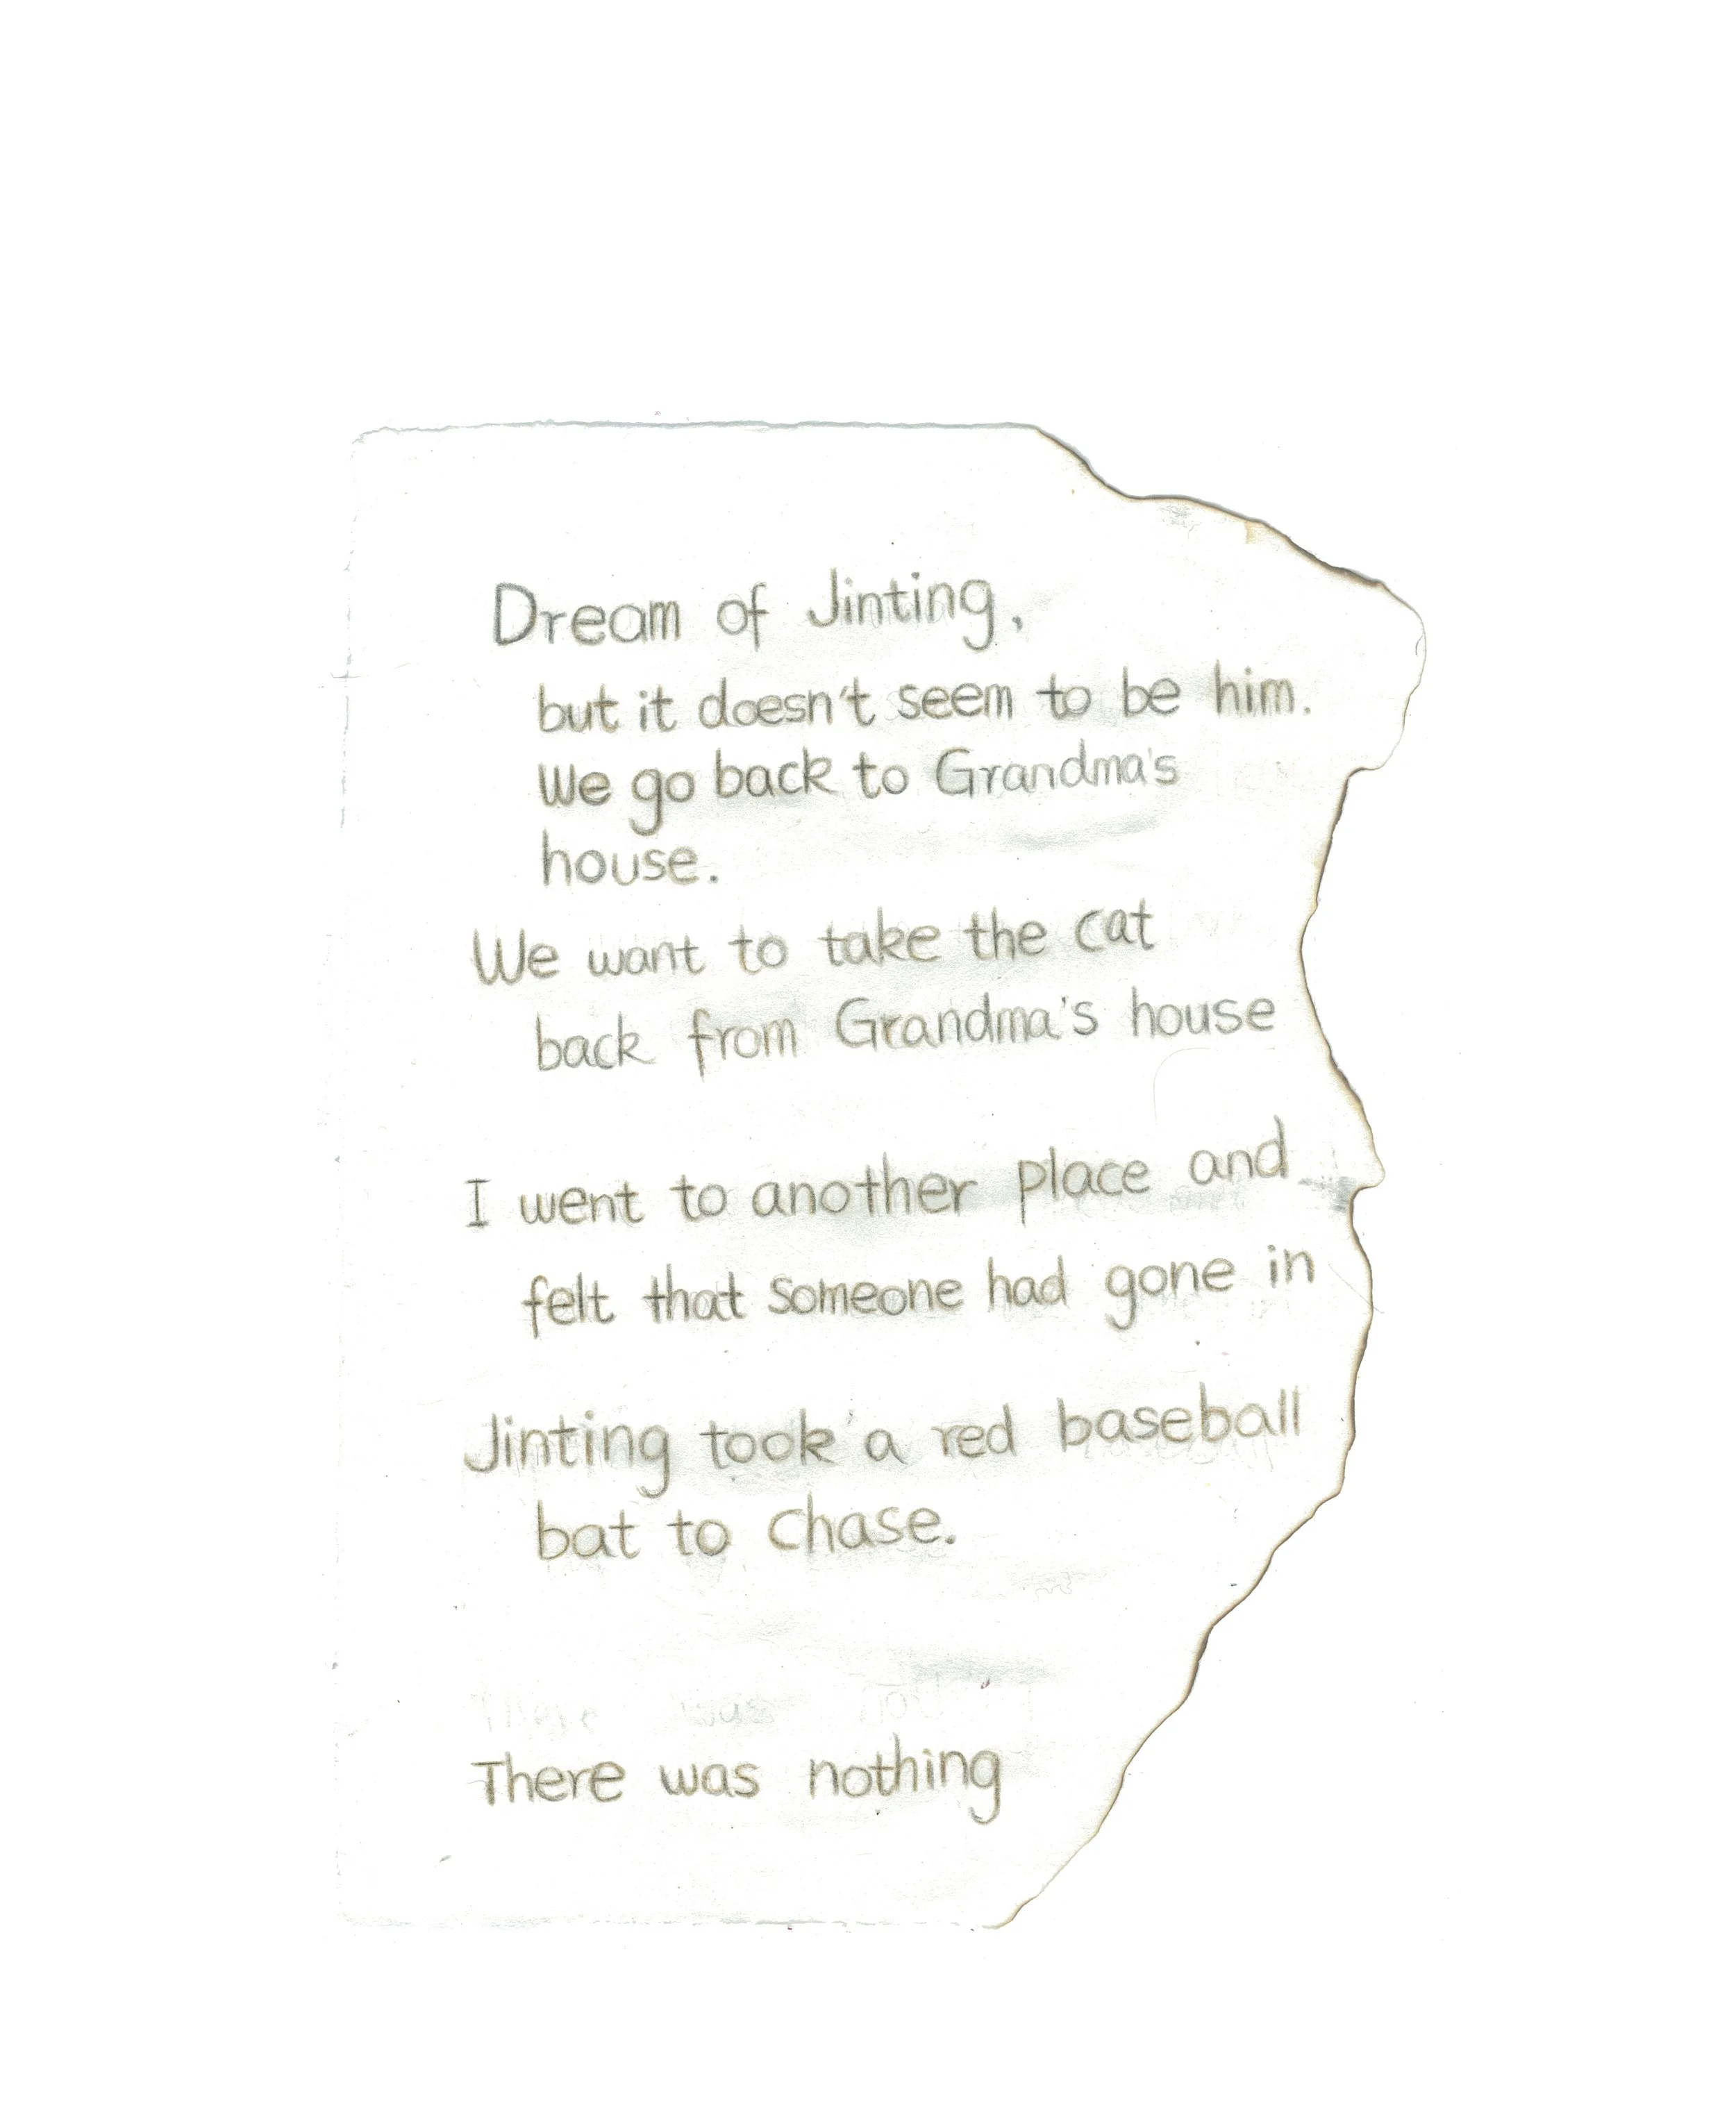 Dream of Jinting,
but it doesn't seem to be him.
We go back to Grandma's
house.
We want to take the cat
back from Grandma's house
I went to another place and
felt that someone had gone in
Jinting took a red baseball
bat to chase.
There was nothing